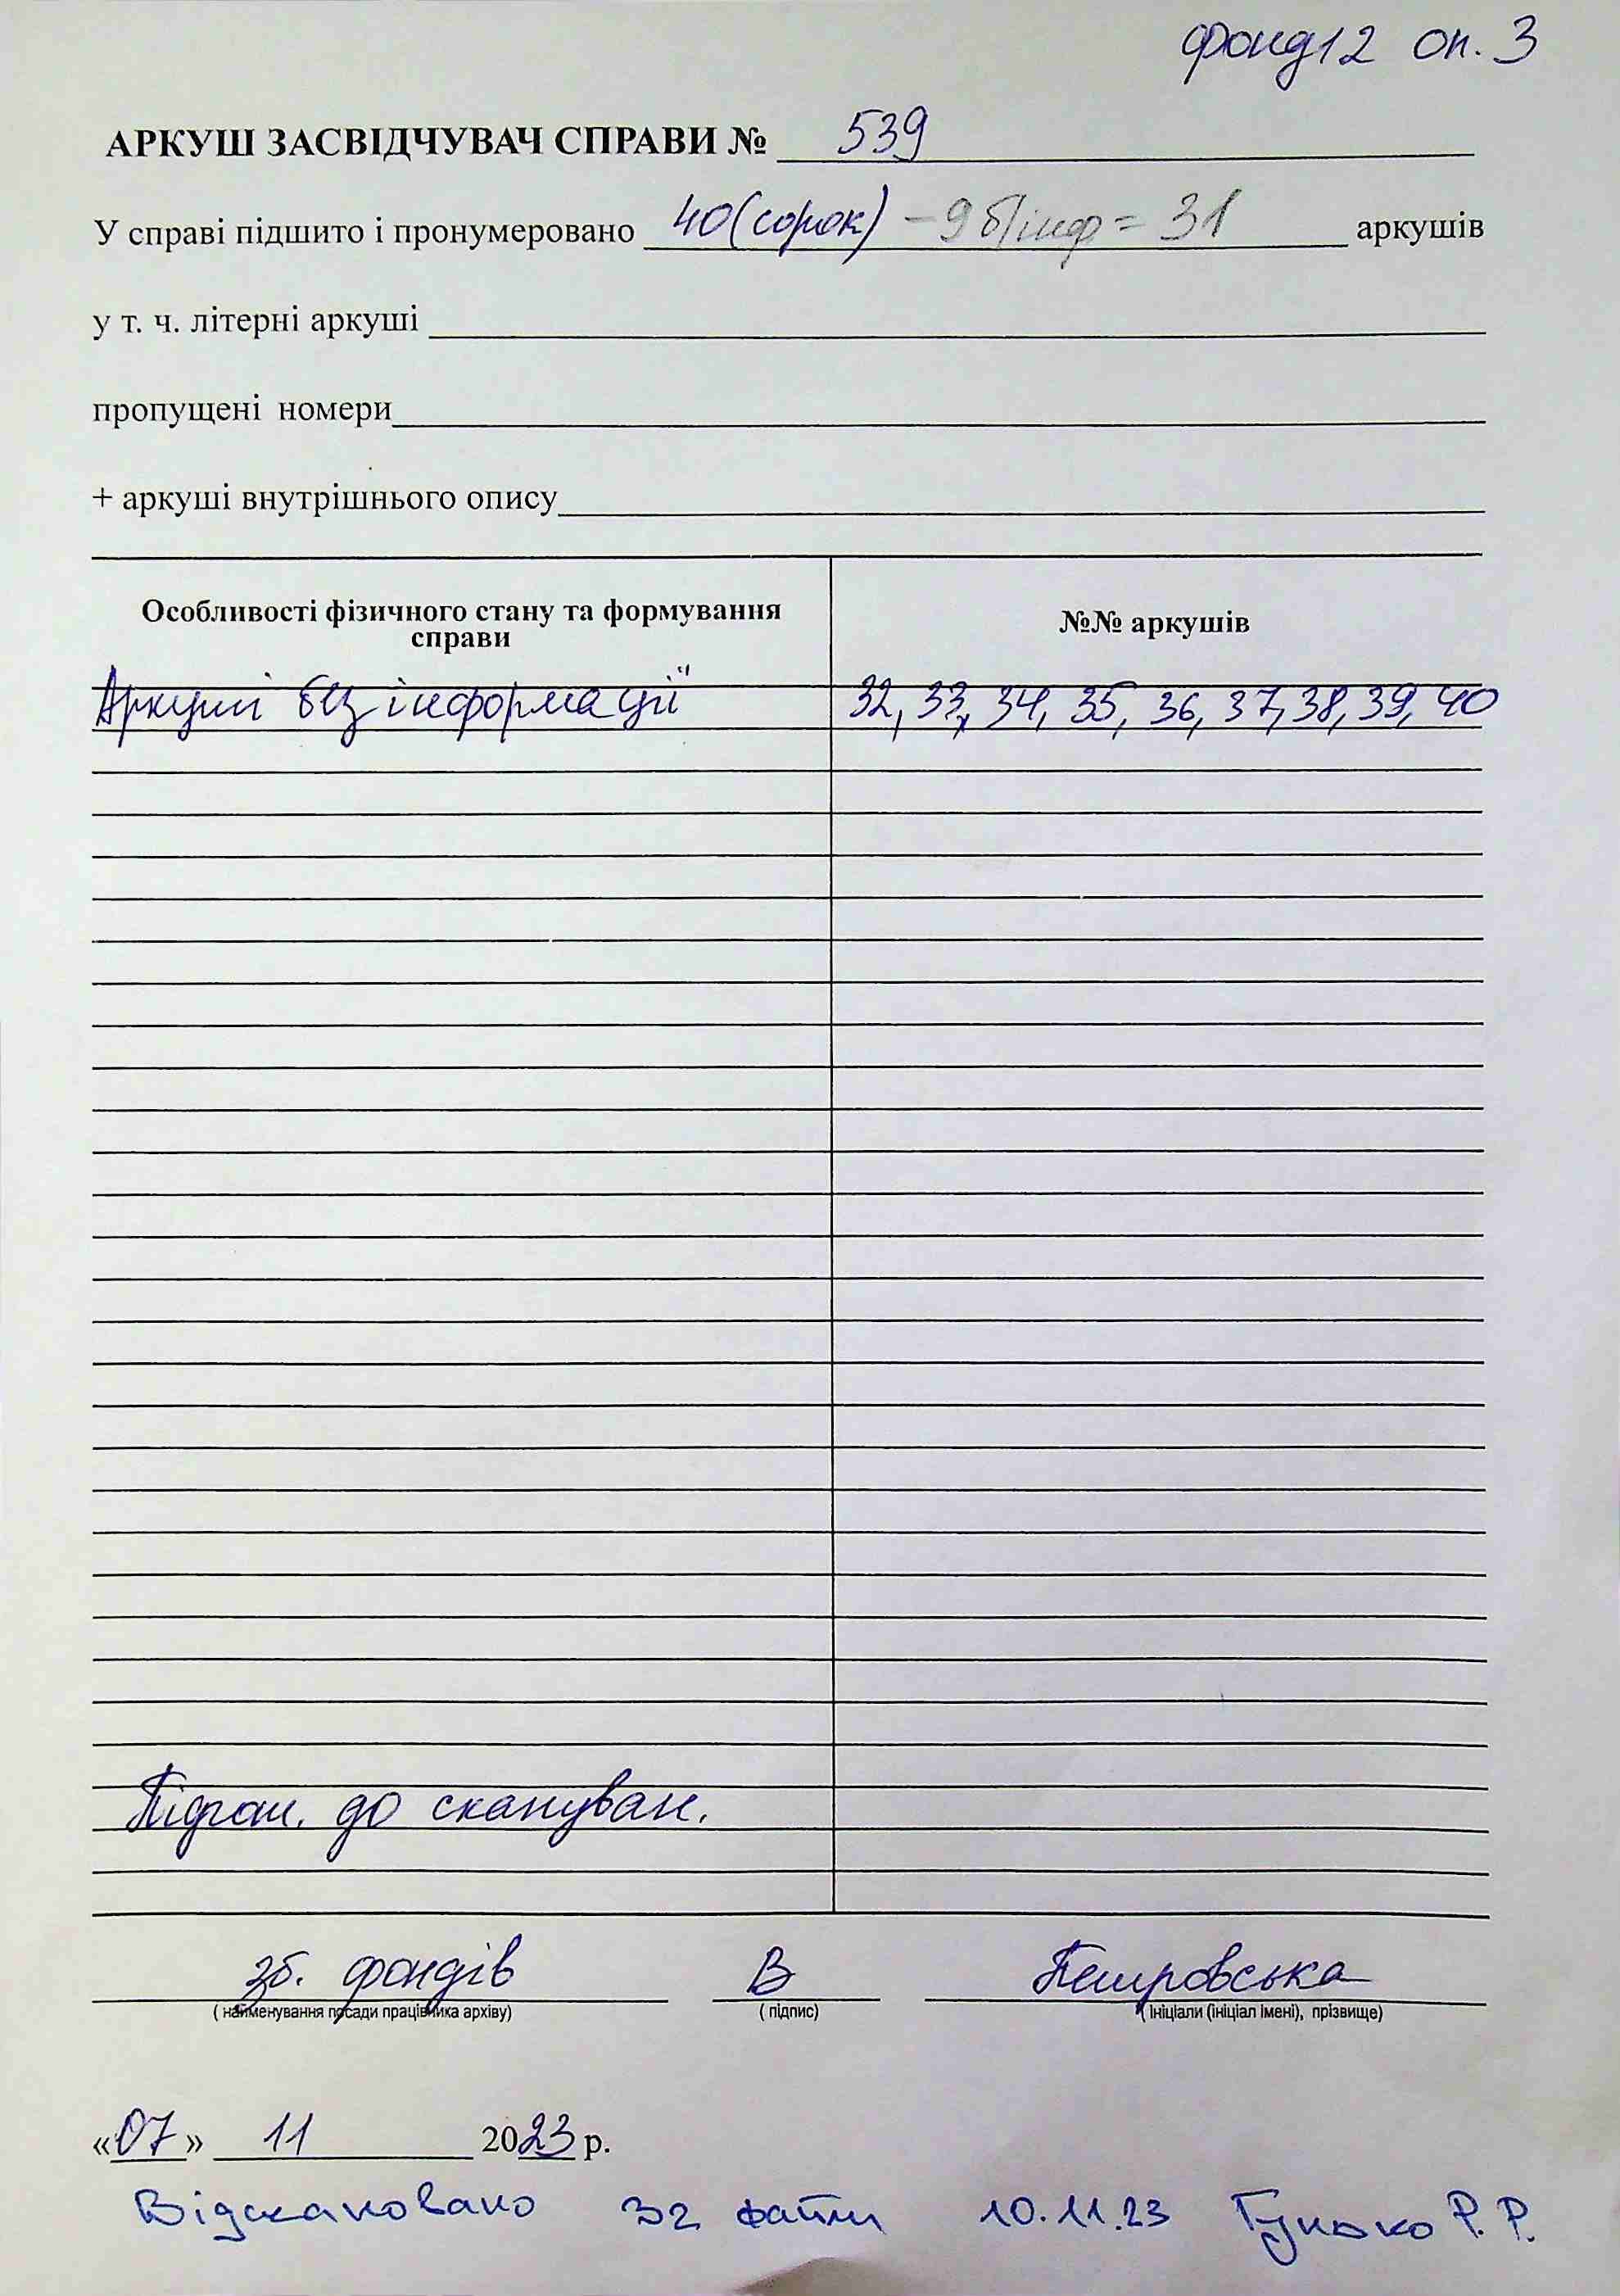 фонд 12 оп. 3
АРКУШ ЗАСВІДЧУВАЧ СПРАВИ № 539
У справі підшито і пронумеровано 40 (сорок) – 9 б/інф = 31 аркушів
у т. ч. літерні аркуші
пропущені номери
+ аркуші внутрішнього опису
Особливості фізичного стану та формування справи
№№ аркушів
Аркуші без інформації 32, 33, 34, 35, 36, 37, 38, 39, 40
до скануван.
зб. фондів В Петровська
( найменування посади працівника архіву) ( підпис) ( ініціали (ініціал імені), прізвище)
«07» 11 2023 р.
Відскановано 32 файли 10.11.23 Гунько Р. Р.